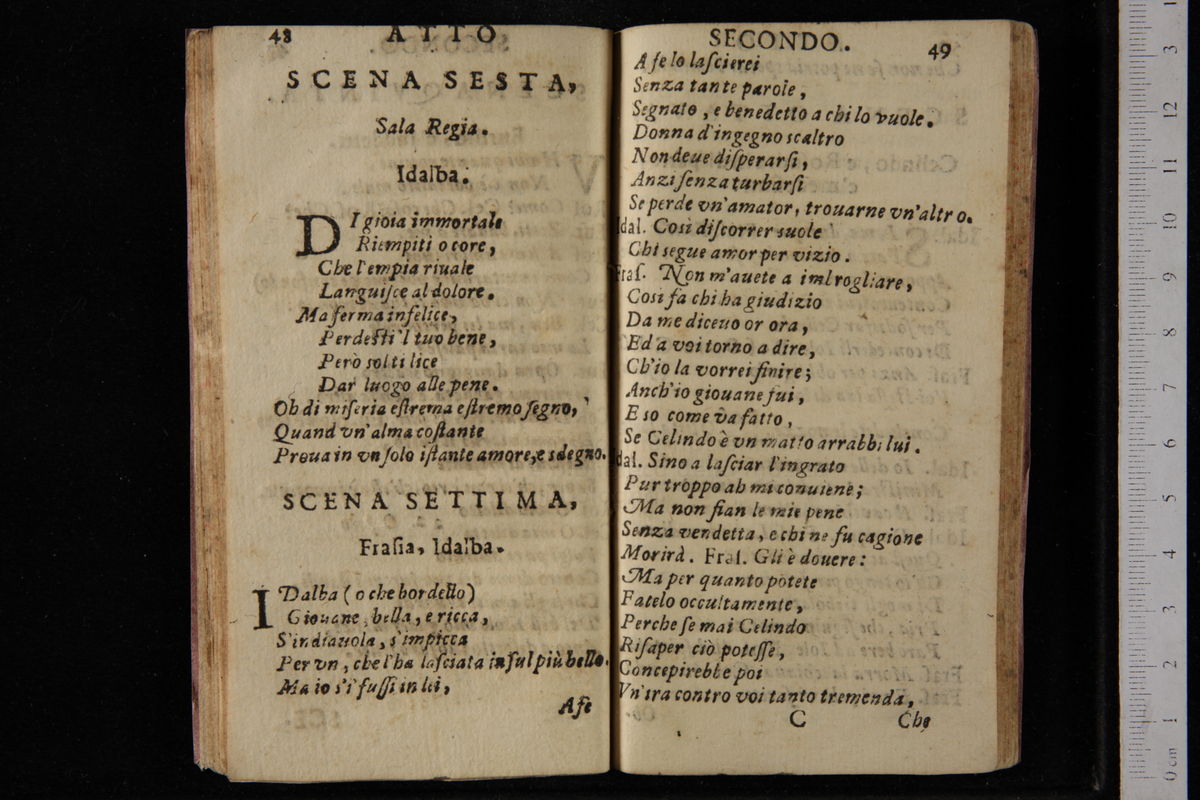 48 ATTO
SCENA SESTA,
Sala Regia.
Idalba.
DI gioia immortale
Riempiti o core,
Che l'empia riuale
Languiſce al dolore.
Ma ferma infelice,
Perdeſti 'l tuo bene,
Però sol ti lice
Dar luogo alle pene.
Oh di miſeria eſtrema eſtremo ſegno,
Quand vn'alma coſtante
Proua in vn ſolo iſtante amore, e sdegno.
SCENA SETTIMA,
Fraſia, Idalba.
IDalba (o che bordello)
Giouane, bella, e ricca,
S'indiauola, s'impicca
Per vn, che l'ha laſciata in ſul più bello.
Ma io s'i' fuſſi in lei,
Afe
SECONDO. 49
A fe lo laſcierei
Senza tante parole,
Segnato, e benedetto a chi lo vuole.
Donna d'ingegno scaltro
Non deue diſperarſi,
Anzi ſenza turbarſi
Se perde vn'amator, trouarne vn'altro.
Idal. Così diſcorrer suole
Chi segue amor per vizio.
Fraſ. Non m'auete a imbrogliare,
Così fà chi ha giudizio
Da me diceuo or ora,
Ed a voi torno a dire,
Ch'io la vorrei finire;
Anch'io giouane fui,
E so come và fatto,
Se Celindo è vn matto arrabbi lui.
Idal. Sino a laſciar l'ingrato
Pur troppo ah mi conuiene;
Ma non fian le mie pene
Senza vendetta, e chi ne fu cagione
Morirà. Fraſ. Gli è douere:
Ma per quanto potete
Fatelo occultamente,
Perche ſe mai Celindo
Riſaper ciò poteſſe,
Concepirebbe poi
Vn'ira contro voi tanto tremenda,
C Che